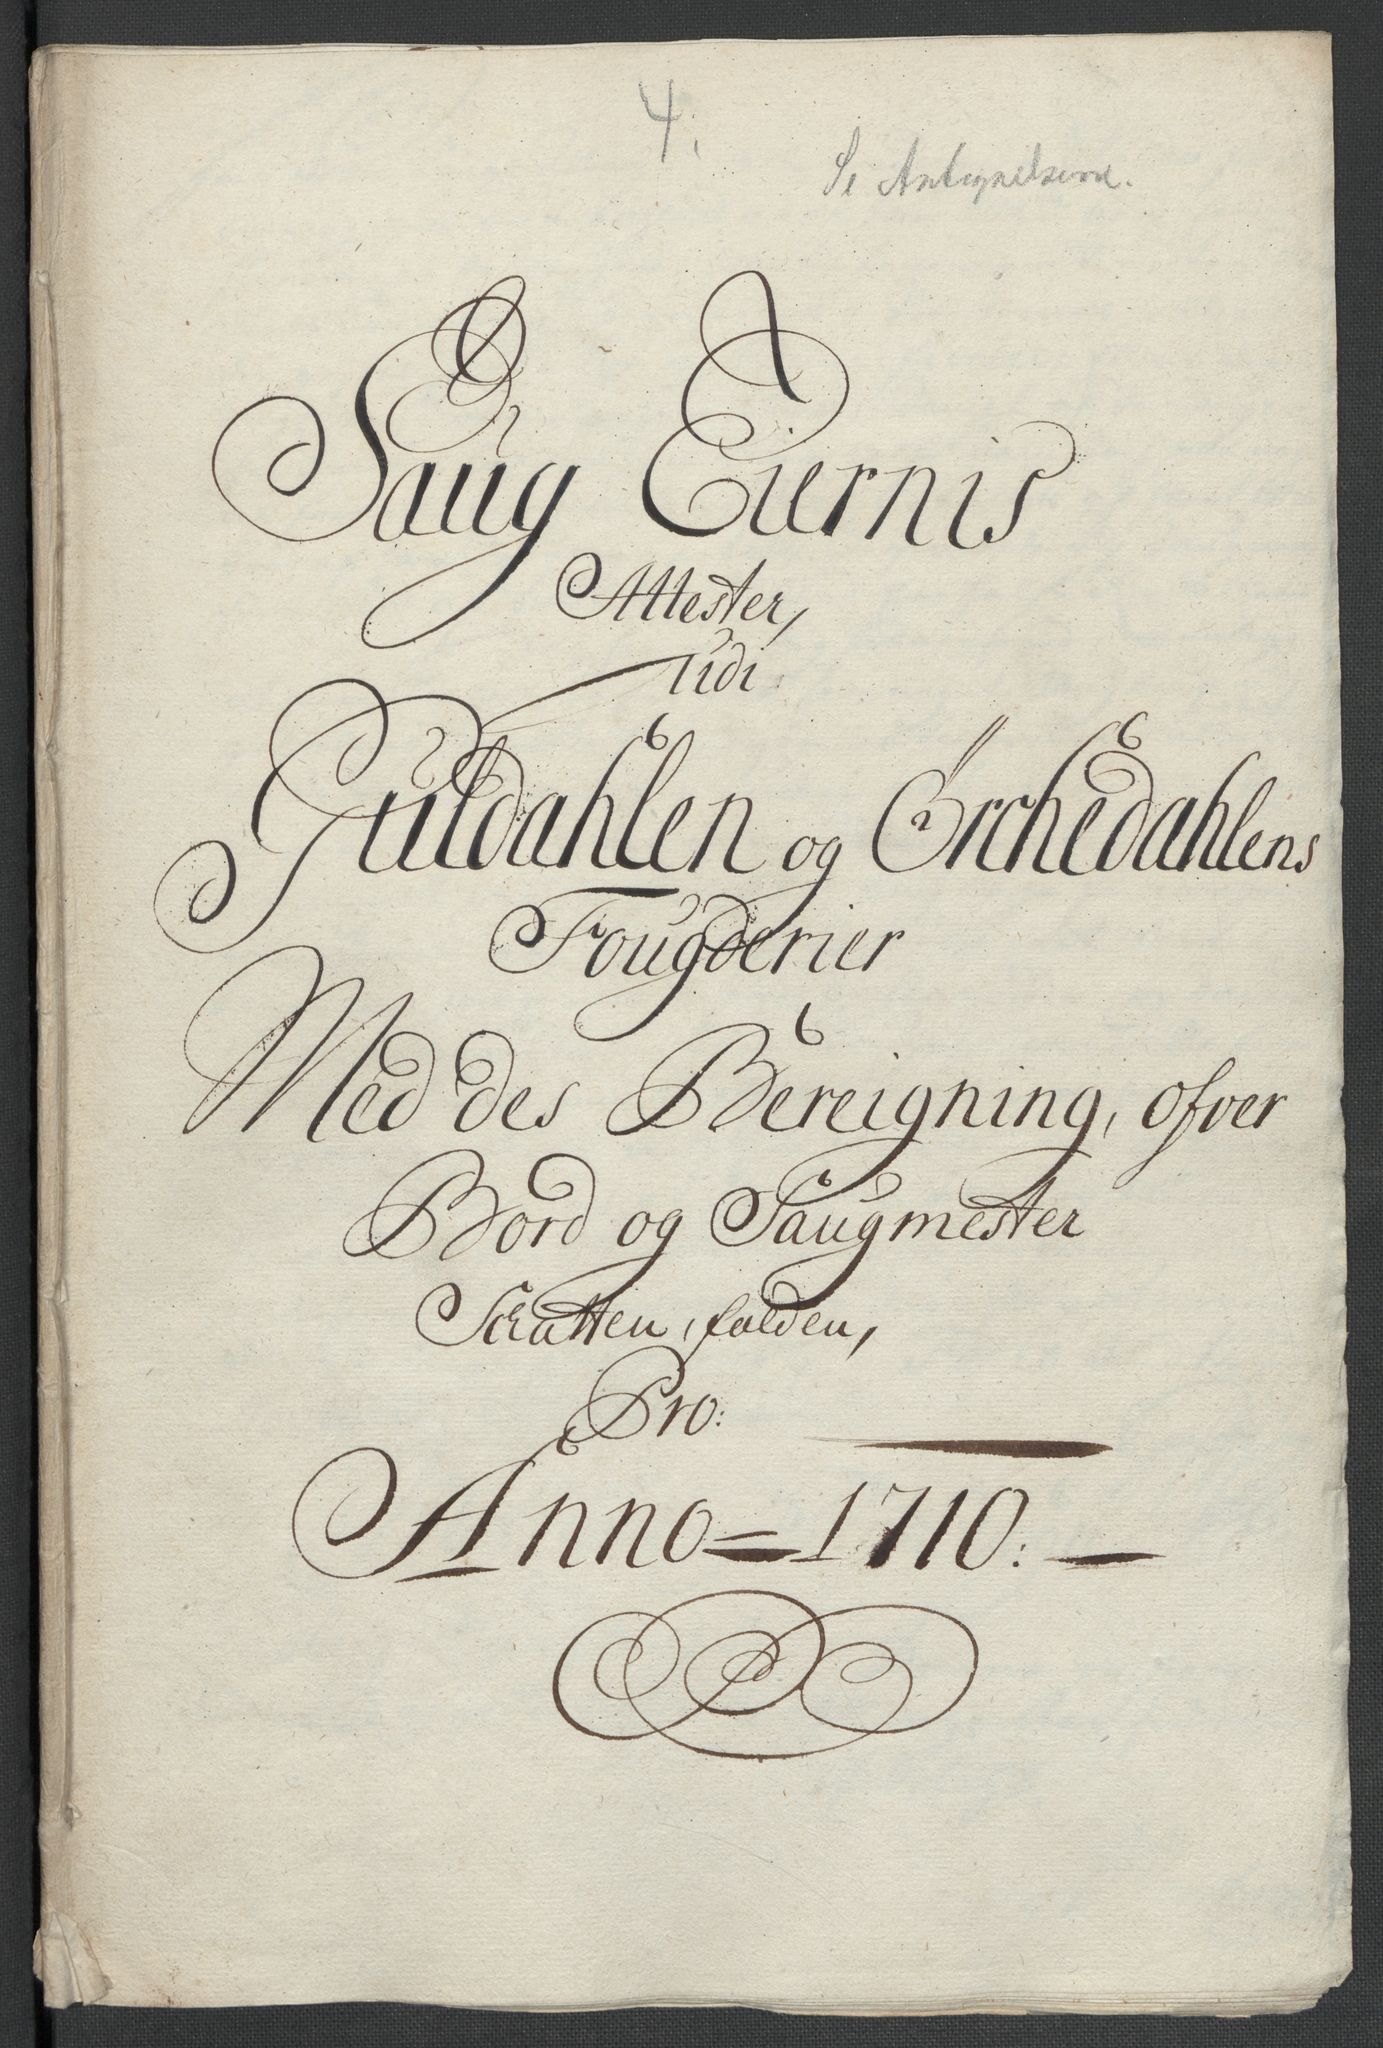 4.
Se Antegnelserne.
Saug Eiernis
Attester,
Udi
Guldahlen og Orchedahlens
Fougderier
Med des Bereigning, ofver
Bord og Saugmester
Schatten, falden,
Pro:
Anno = 1710: –